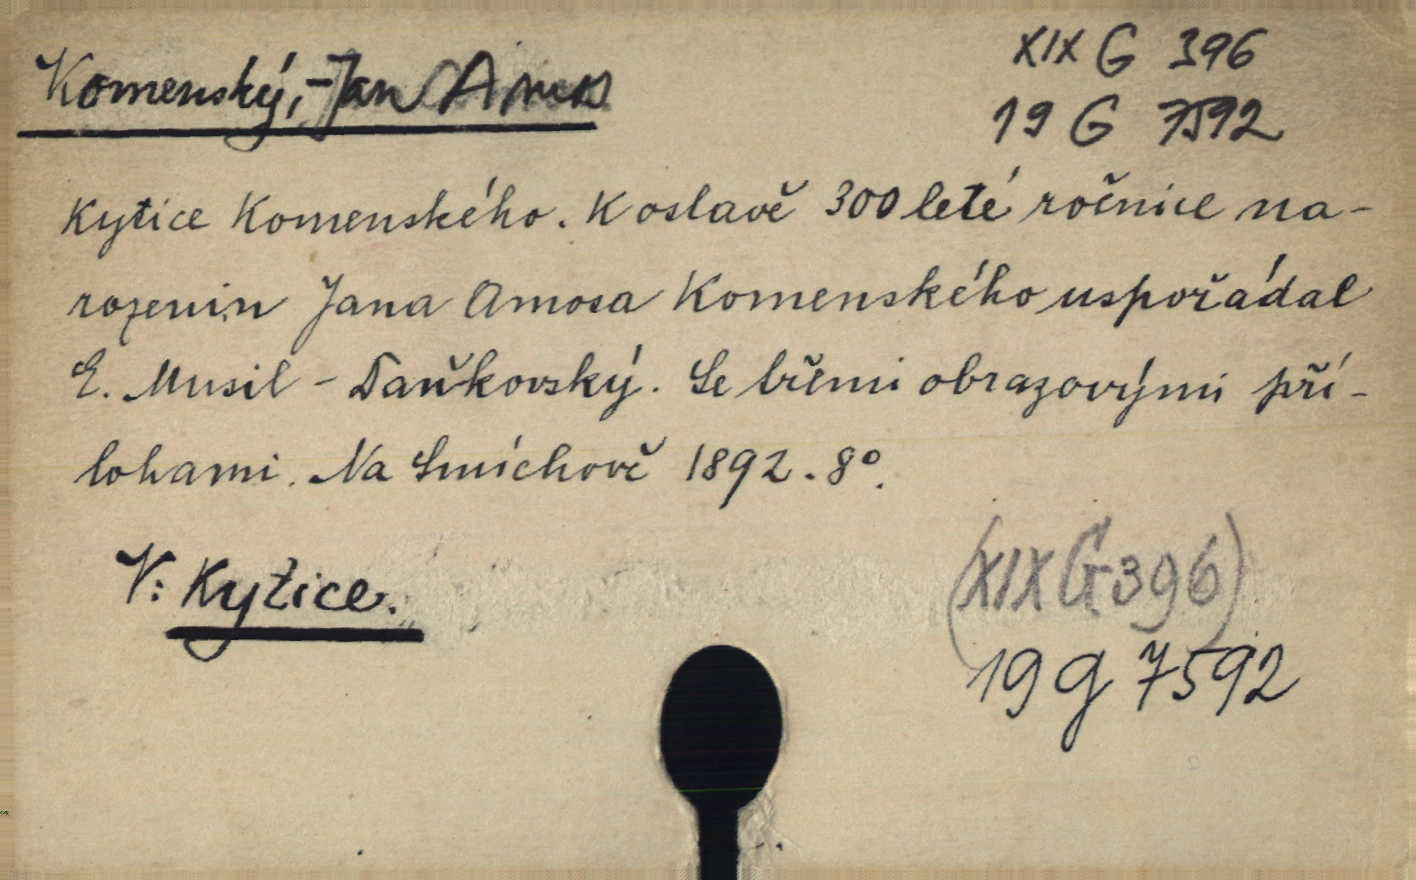 Komenský, Jan Amos
XIX G 396
19 G 7592
Kytice Komenského. K oslavě 300leté ročnice na-
rozenin Jana Amosa Komenského uspořádal
E. Musil-Daňkovský. Se třemi obrazovými pří-
lohami. Na Smíchově 1892. 8°.
V: Kytice.
(XIX G 396)
19 G 7592